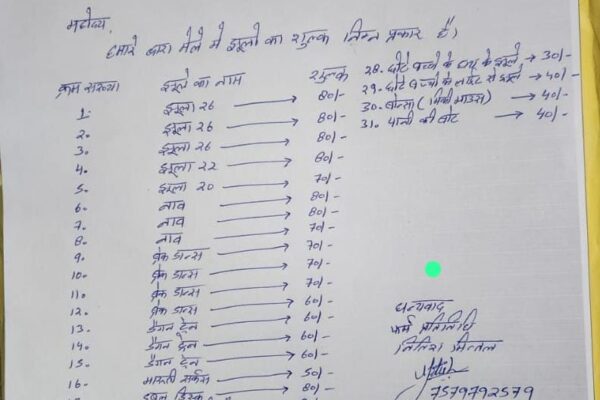 महोदय,
हमारे द्वारा मेले में झूलों का शुल्क निम्न प्रकार है।
क्रम संख्या झूले का नाम शुल्क
1. झूला 26 → 80/-
2. झूला 26 → 80/-
3. झूला 26 → 80/-
4. झूला 22 → 80/-
5. झूला 20 → 70/-
6. नाव → 80/-
7. नाव → 80/-
8. नाव → 70/-
9. ब्रेक डान्स → 70/-
10. ब्रेक डान्स → 70/-
11. ब्रेक डान्स → 70/-
12. ब्रेक डान्स → 60/-
13. ड्रैगन ट्रेन → 60/-
14. ड्रैगन ट्रेन → 60/-
15. ड्रैगन ट्रेन → 60/-
16. मारुती सर्कस → 50/-
डिस्क → 80/-
28. छोटे बच्चों के झूले → 30/-
29. छोटे बच्चों के झूले → 40/-
30. (मिकी माउस) → 40/-
31. पानी की बोट → 40/-
धन्यवाद
फर्म प्रतिनिधि
नितिश मित्तल
7579792579